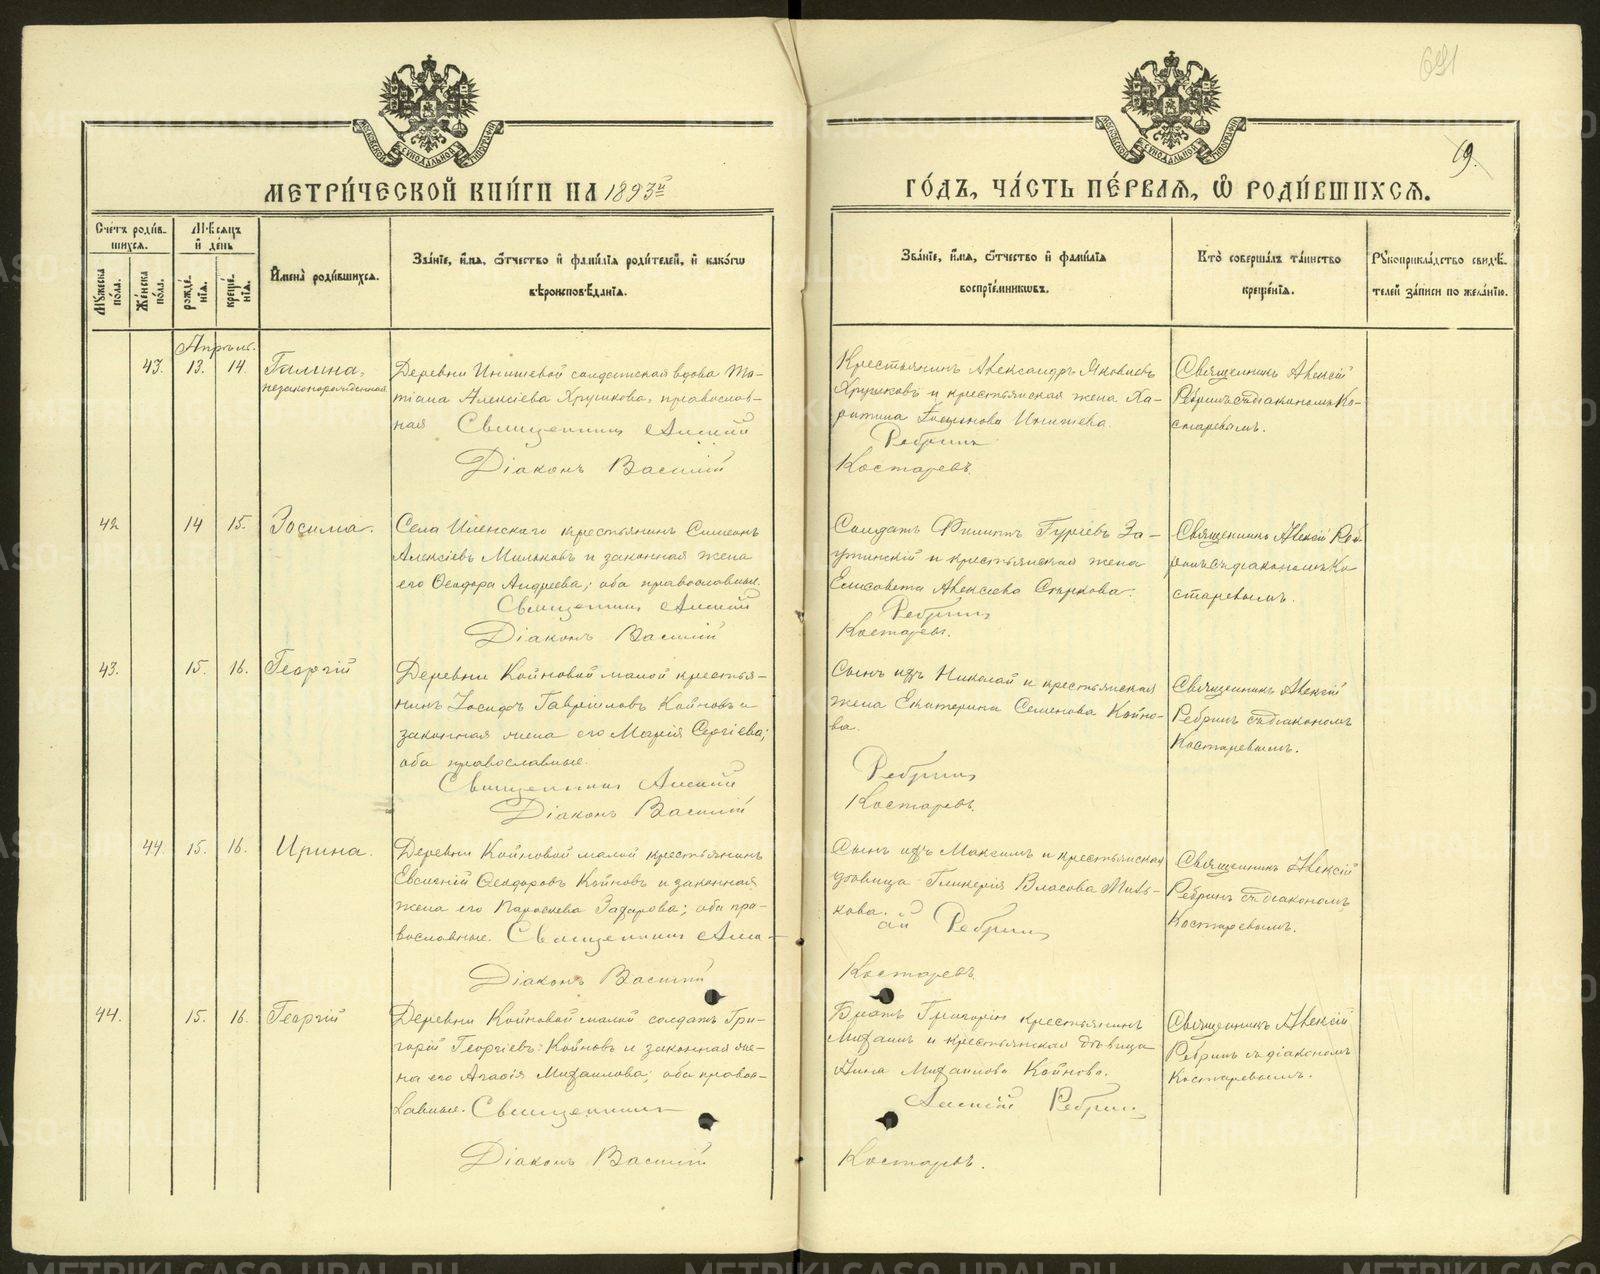 691
19.
МЕТРИ́ЧЕСКОЙ КНИ́ГИ НА 1893й
ГО́ДЪ, ЧА́СТЬ ПЕ́РВАЯ, Ѽ РОДИ́ВШИХСЯ.
Сче́тъ роди́в-
шихся.
Му́жеска по́ла.
Же́нска по́ла.
Мѣ́сяцъ и де́нь
рожде́нія.
креще́нія.
И҆мена̀ роди́вшихся.
Зва́нїе, и҆́мя, ѻ҆́тчество и҆ фами́лїя роди́телей, и҆ како́гѡ
вѣроисповѣ́данїя.
Зва́нїе, и҆́мя, ѻ҆́тчество и҆ фами́лїя
воспрїе́мникѡвъ.
Кто̀ соверша́лъ та́инство
креще́нїя.
Рꙋкоприкла́дство свидѣ́-
телей за́писи по жела́нїю.
Апрѣль.
43. 13. 14. Галина,
незаконорожденная
Деревни Инишевой солдатская вдова Та-
тіана Алексіева Хрушкова, православ-
ная Священникъ Алексій
Діаконъ Василій
Крестьянинъ Александръ Яковлевъ
Хрушковъ и крестьянская жена Ха-
ритина Инишева.
Ребринъ
Костаревъ.
Священникъ Алексій
Ребринъ съ діакономъ Ко-
старевымъ.
42 14 15. Зосима.
Села крестьянинъ Симеонъ
Алексіевъ Мильковъ и законная жена
его Ѳеодора Андреева; оба православные.
Священникъ Алексій
Діаконъ Василій
Солдатъ Филиппъ Гурьевъ За-
и крестьянская жена
Елисовета Алексіева Старкова.
Ребринъ
Костаревъ.
Священникъ Алексій Реб-
ринъ съ діакономъ Ко
старевымъ.
43. 15. 16. Георгій
Деревни Койновой малой крестья-
нинъ Іосифъ Гавріиловъ Койновъ и
законная жена его Марія Сергіева;
оба православные.
Священникъ Алексій
Діаконъ Василій
Сынъ ихъ Николай и крестьянская
жена Екатерина Семенова Койно-
ва.
Ребринъ
Костаревъ.
Священникъ Алексій
Ребринъ съ діакономъ
Костаревымъ.
44. 15. 16. Ирина.
Деревни Койновой малой крестьянинъ
Евсигній Ѳеодоровъ Койновъ и законная
жена его Параскева Захарова; оба пра-
вославные. Священникъ Алек-
Діаконъ Василій
Сынъ ихъ Максимъ и крестьянская
дѣвица Гликерія Власова Миль-
кова.
сій Ребринъ
Костаревъ.
Священникъ Алексій
Ребринъ съ діакономъ
Костаревымъ.
44. 15. 16. Георгій
Деревни Койновой малой солдатъ Гри-
горій Георгіевъ Койновъ и законная же-
на его Агафія Михаилова; оба правос-
лавные. Священникъ
Діаконъ Василій
Братъ Григорію крестьянинъ
Михаилъ и крестьянская дѣвица
Анна Михаилова Койнова.
Алексій Ребринъ
Костаревъ.
Священникъ Алексій
Ребринъ съ діакономъ
Костаревымъ.
METRIKI.GASO-URAL.RU